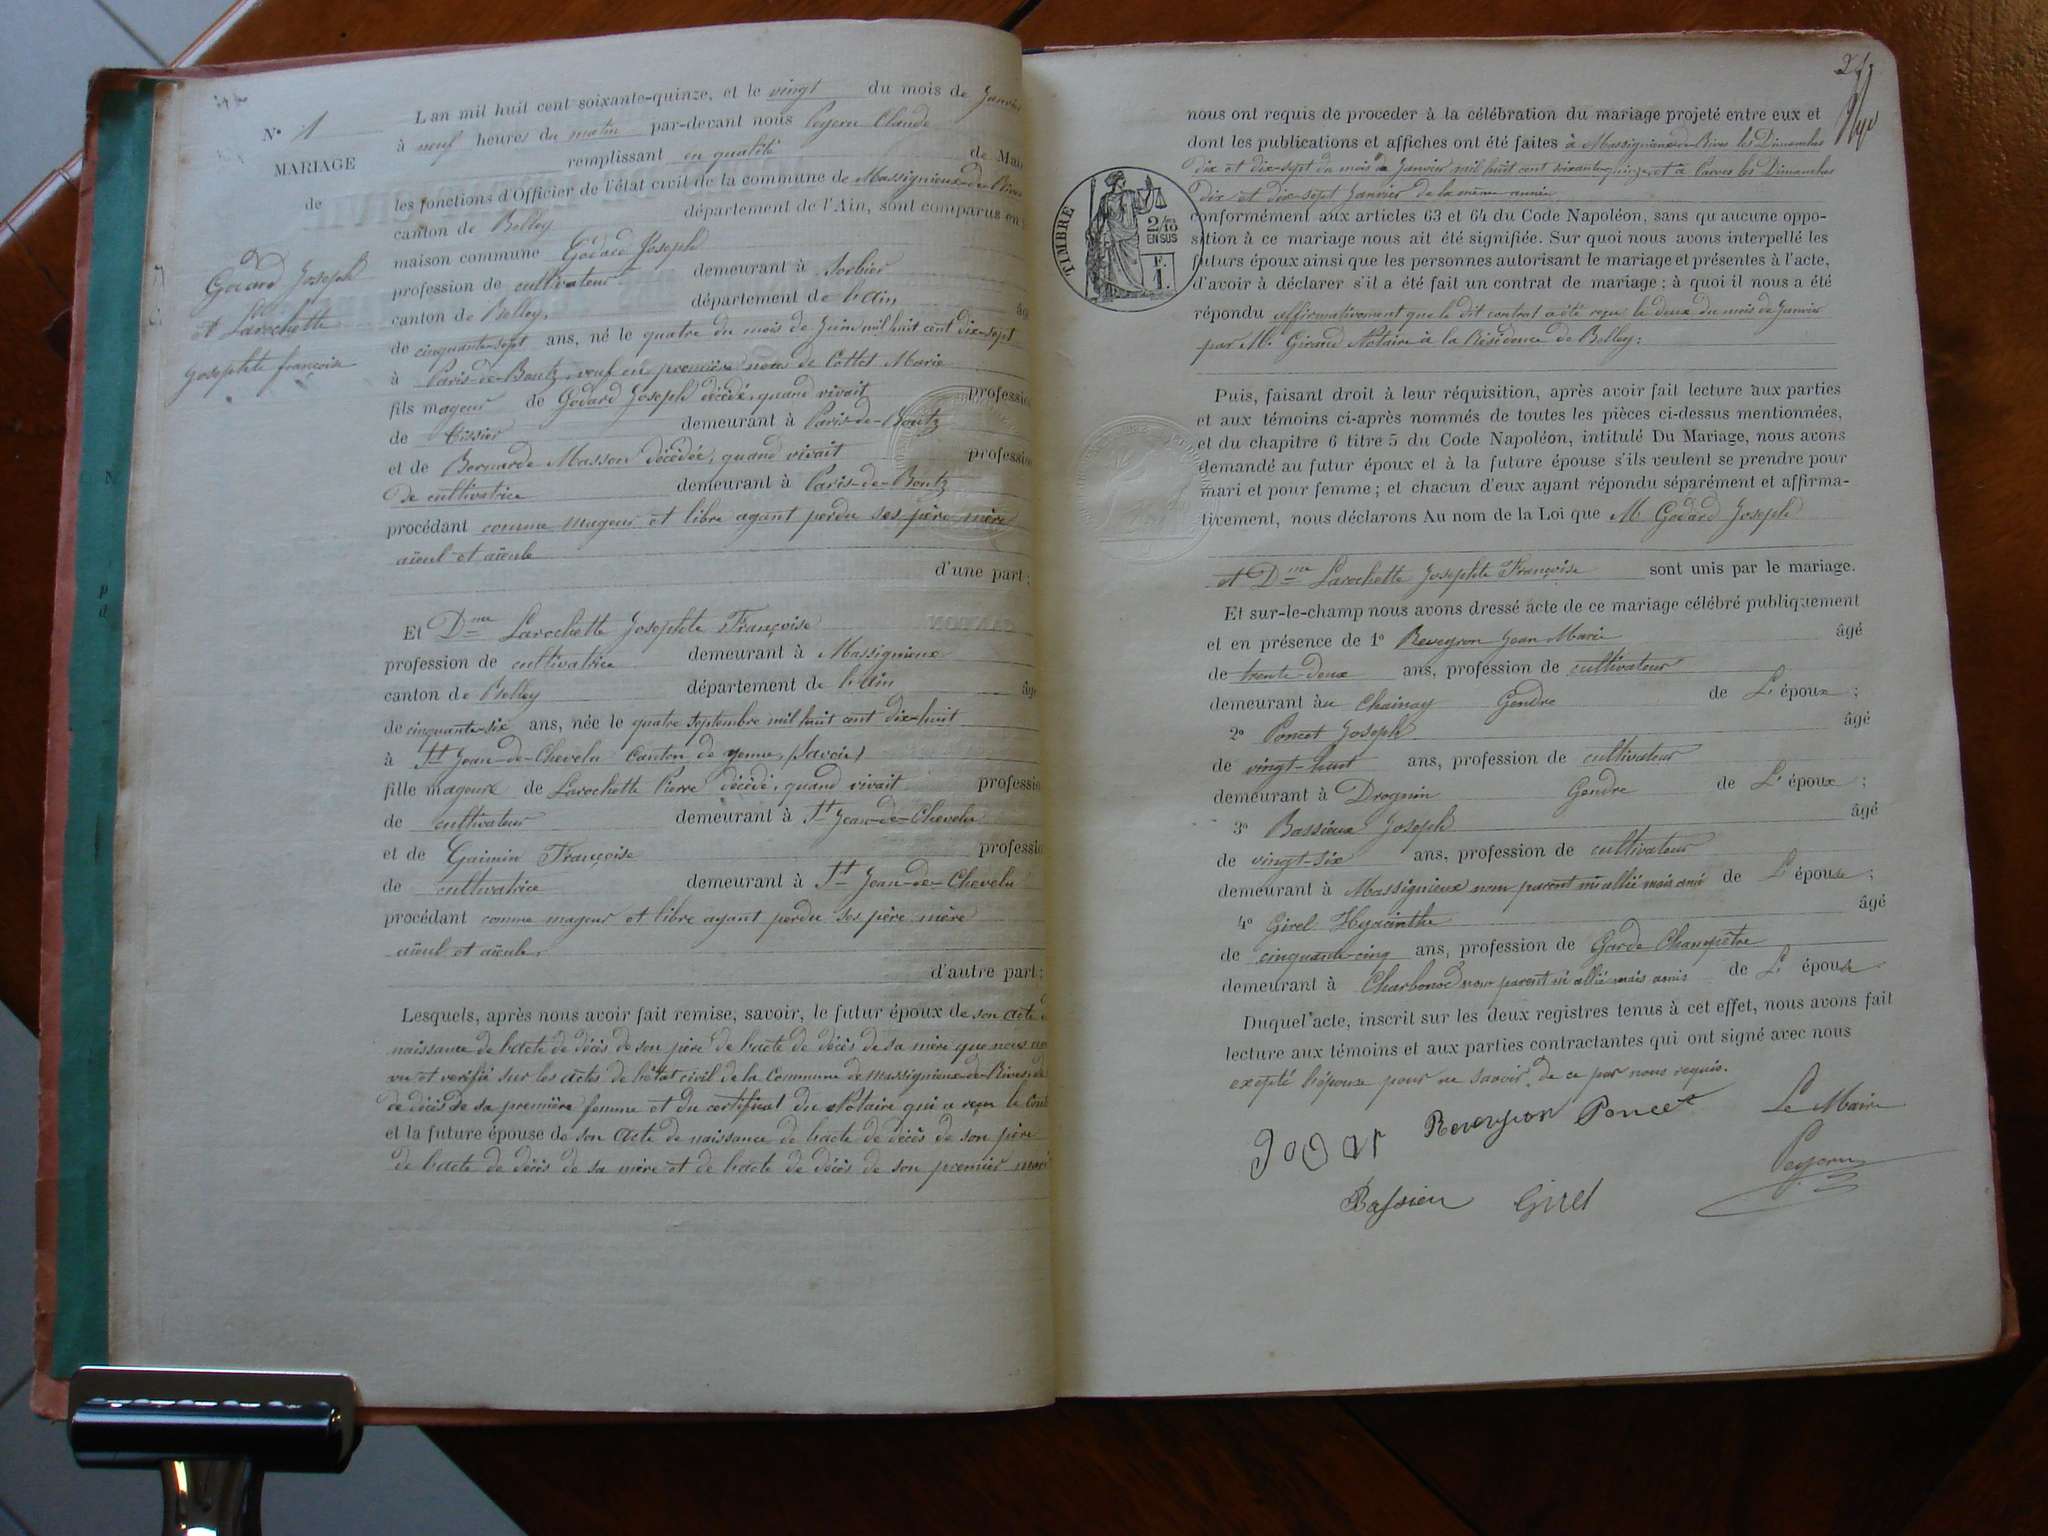 N° 1
MARIAGE
de
Godard Joseph
et Larochette
Josephte françoise
L'an mil huit cent soixante-quinze, et le vingt du mois de Janvier
à neuf heures du matin par-devant nous Peysson Claude
remplissant en qualité de Maire
les fonctions d'Officier de l'état civil de la commune de Massignieux-de-Rives
canton de Belley département de l'Ain, sont comparus en
maison commune Godard Joseph
profession de cultivateur demeurant à Sorbier
canton de Belley, département de l'Ain âg
de cinquante-sept ans, né le quatre du mois de Juin mil huit cent dix-sept
à veuf en première noces de Cottet Marie
fils majeur de Godard Joseph décédé, quand vivait profession
de Tissier demeurant à
et de Bernarde Masson décédée, quand vivait profession
de cultivatrice demeurant à
procédant comme majeur et libre ayant perdu ses père mère
aïeul et aïeule
d'une part;
Et Dme Larochette Josephte Françoise
profession de cultivatrice demeurant à Massignieux
canton de Belley département de l'Ain âgé
de cinquante-six ans, née le quatre septembre mil huit cent dix-huit
à St Jean-de-Chevelu canton de yenne, (Savoie)
fille majeure de Larochette Pierre décédé, quand vivait profession
de cultivateur demeurant à St Jean-de-Chevelu
et de Gaimin Françoise profession
de cultivatrice demeurant à St Jean-de-Chevelu
procédant comme majeur et libre ayant perdu ses père mère
aïeul et aïeule,
d'autre part;
Lesquels, après nous avoir fait remise, savoir, le futur époux de son acte d
naissance de l'acte de décès de son père de l'acte de décès de sa mère que nous
vu et vérifié sur les actes de l'état civil de la Commune de Massignieux-de-Rives
de décès de sa première femme et du certificat du Notaire qui a reçu le
et la future épouse de son acte de naissance de l'acte de décès de son père
de l'acte de décès de sa mère et de l'acte de décès de son premier mari
nous ont requis de proceder à la célébration du mariage projeté entre eux et
dont les publications et affiches ont été faites à Massignieux-de-Rives les Dimanches
dix et dix-sept du mois de Janvier mil huit cent soixante-quinze et à Parves les Dimanches
dix et dix-sept Janvier de la même année
conformément aux articles 63 et 64 du Code Napoléon, sans qu'aucune oppo-
sition à ce mariage nous ait été signifiée. Sur quoi nous avons interpellé les
futurs époux ainsi que les personnes autorisant le mariage et présentes à l'acte,
d'avoir à déclarer s'il a été fait un contrat de mariage; à quoi il nous a été
répondu affirmativement que le dit contrat a été reçu le deux du mois de Janvier
par Mr Giraud Notaire à la Résidence de Belley:
TIMBRE
2/10
EN SUS
F.
1.
Puis, faisant droit à leur réquisition, après avoir fait lecture aux parties
et aux témoins ci-après nommés de toutes les pièces ci-dessus mentionnées,
et du chapitre 6 titre 5 du Code Napoléon, intitulé Du Mariage, nous avons
demandé au futur époux et à la future épouse s'ils veulent se prendre pour
mari et pour femme; et chacun d'eux ayant répondu séparément et affirma-
tivement, nous déclarons Au nom de la Loi que M Godard Joseph
et Dme Larochette Josephte Françoise sont unis par le mariage.
Et sur-le-champ nous avons dressé acte de ce mariage célébré publiquement
et en présence de 1° Reveyron Jean Marie âgé
de trente-deux ans, profession de cultivateur
demeurant au Chainay Gendre de L'époux;
2° Poncet Joseph âgé
de vingt-huit ans, profession de cultivateur
demeurant à Drognin Gendre de L'époux;
3° Bassieux Joseph âgé
de vingt-six ans, profession de cultivateur
demeurant à Massignieux non parent ni allié mais ami de L'épouse;
4° Girel Hyacinthe âgé
de cinquante-cinq ans, profession de Garde Champêtre
demeurant à Charbonod non parent ni allié mais amis de L'épouse
Duquel acte, inscrit sur les deux registres tenus à cet effet, nous avons fait
lecture aux témoins et aux parties contractantes qui ont signé avec nous
excepté l'épouse pour ne savoir, de ce par nous requis.
Godar Reveyron Poncet Le Maire
Bassieu Girel